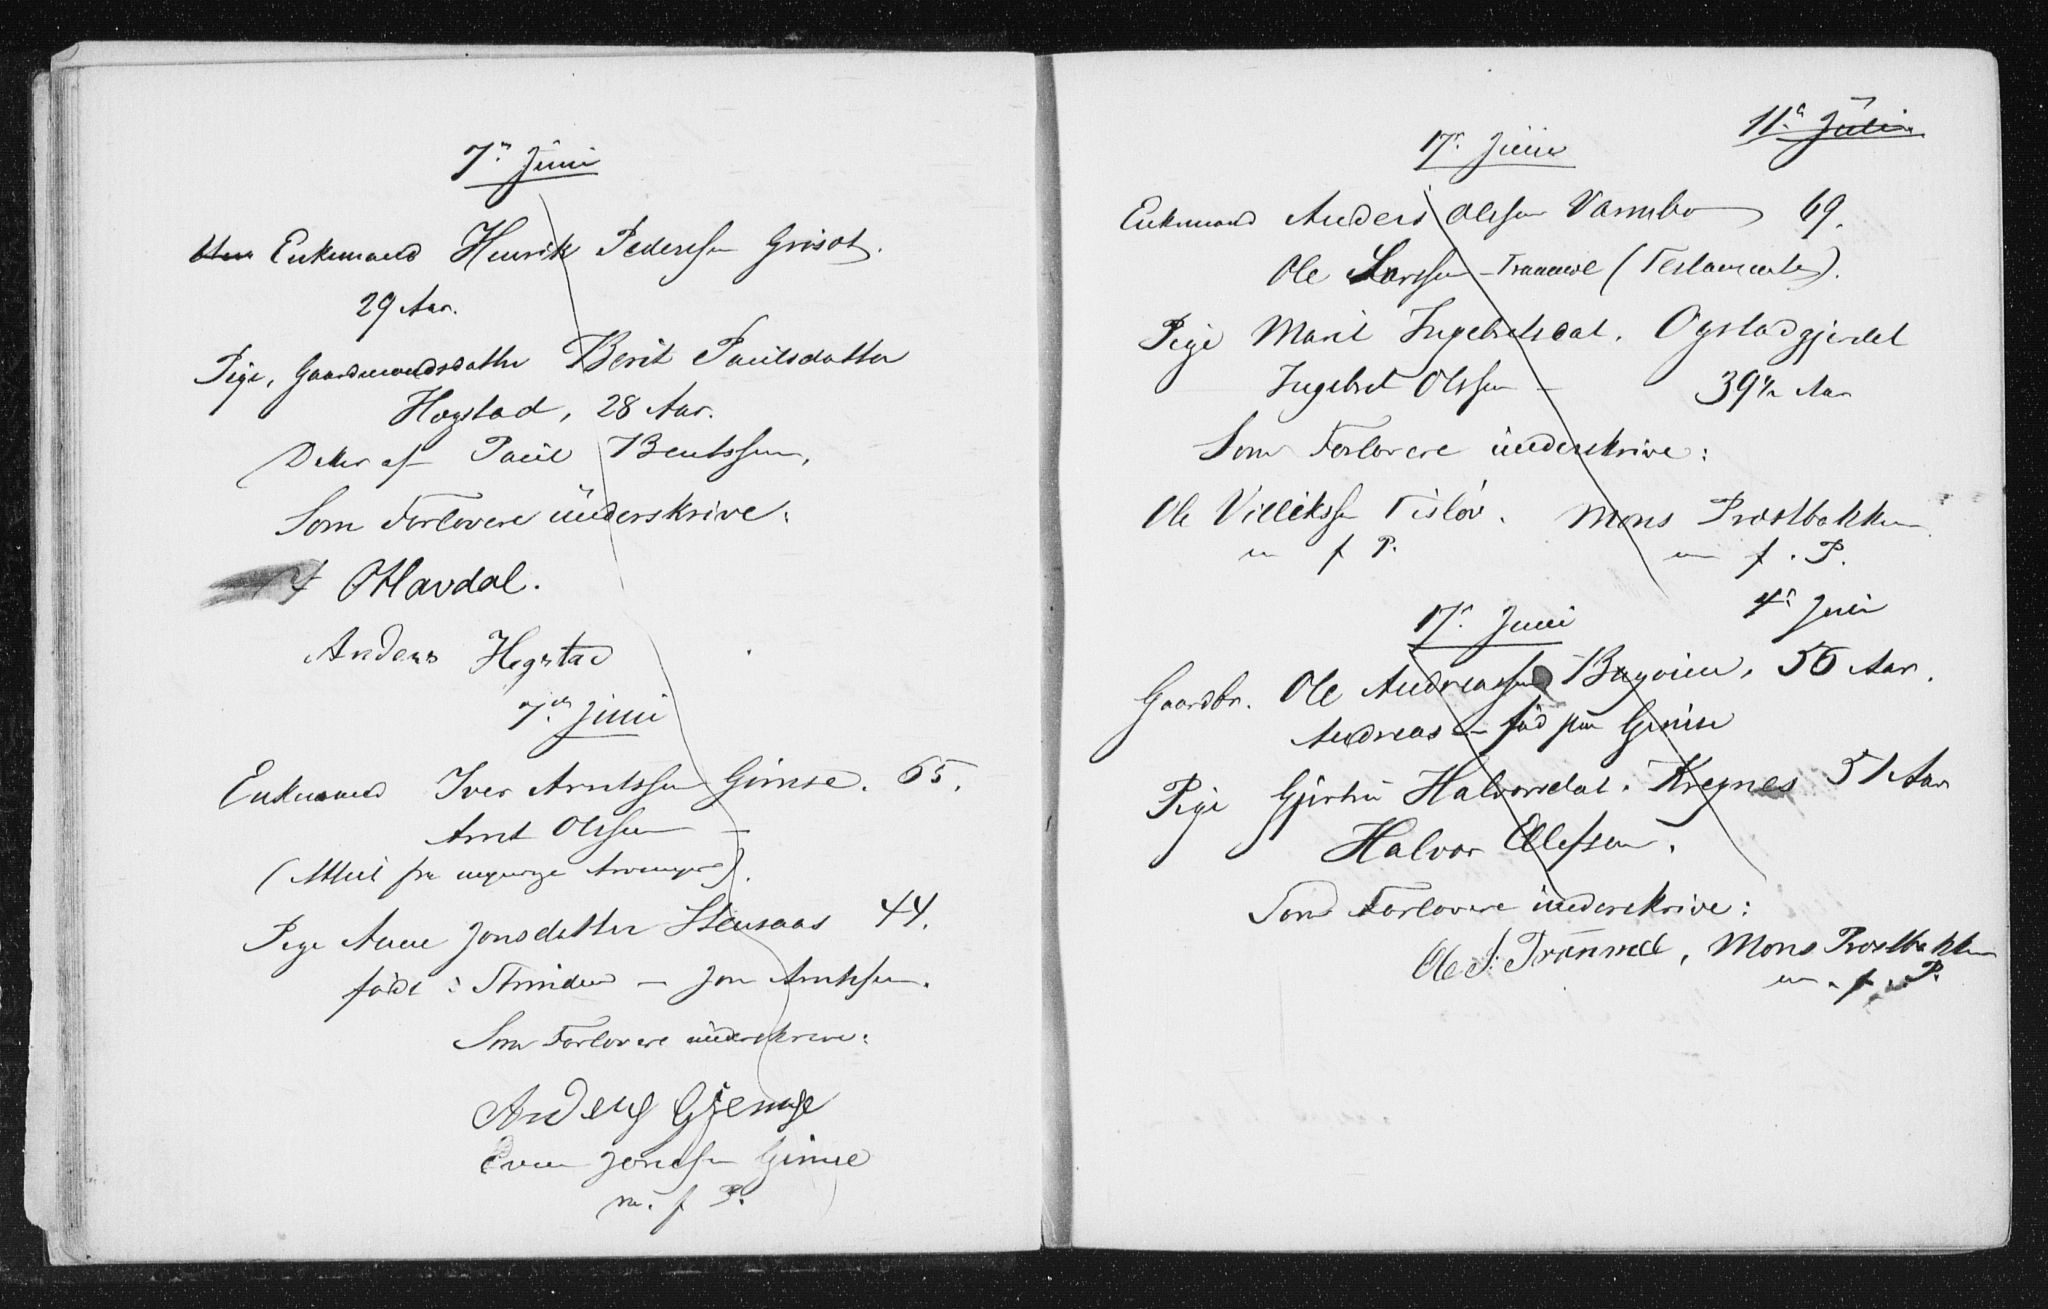 7de Juni
Enkemand Henrik Pedersen Grisöt.
29 Aar.
Pige, Gaardmandsdatter Berit Paulsdatter
Hogstad, 28 Aar.
Datter af Paul Bentssen,
Som Forlovere underskrive:
O Havdal.
Anders Hegstad
7de Juni
Enkemand Iver Arntssen Gimse. 65.
Arnt Olssen —
(Attest fra Arvinger).
Pige Anne Jonsdatter Stensaas 44.
født i Strinden — Jon Arntssen.
Som Forlovere underskrive:
Anders Gjemse
Even Jonssen Gimse
m. f P.
11te Juli
17de Juni
Enkemand Anders Olssen Varmbo 69.
Ole Larssen Tranmel (Testamente).
Pige Marit Ingebretsdat. Ogstadgjerdet
Ingebret Olssen — 39½ Aar
Som Forlovere underskrive:
Ole Villikssen Tislöv. Mons Prostbakken
m f P. m f. P.
17de Juni 4de Juli
Gaardbr. Ole Andreassen Bagøien, 56 Aar.
Andreas — fød paa Gimse
Pige Gjertru Halvorsdat. Kregnes 51 Aar
Halvor Ellefsen.
Som Forlovere underskrive:
Ole L. Tranmel, Mons Prostbakken
m. f. P.